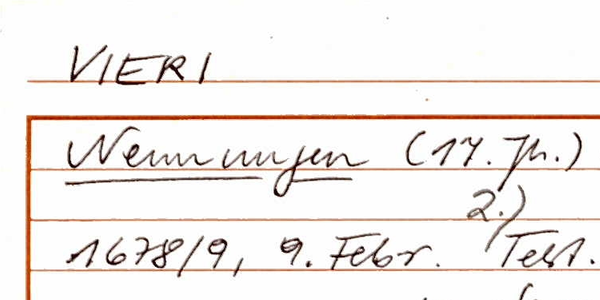 VIERI
Nennungen (17. Jh.)
2.)
1678/9, 9. Febr. Test.